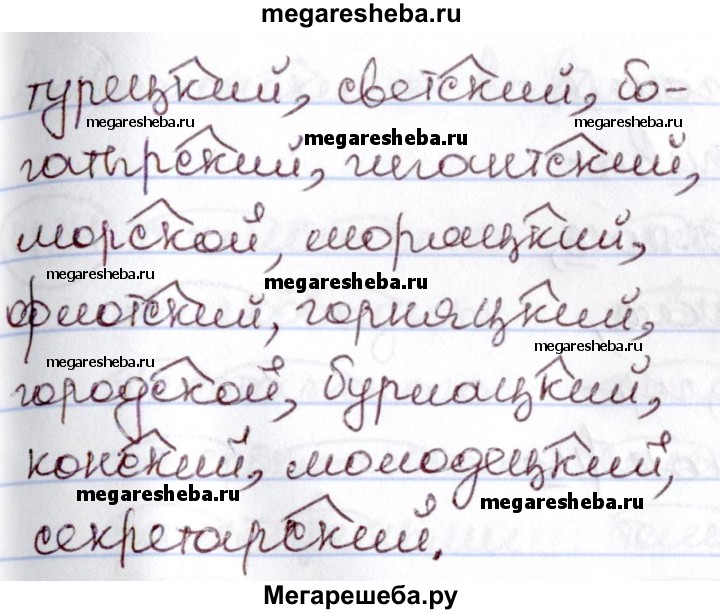 megaresheba.ru
турецкий, светский, бо-
megaresheba.ru megaresheba.ru megaresheba.ru
гатырский, гигантский,
морской, моряцкий,
megaresheba.ru megaresheba.ru
флотский, горняцкий,
megaresheba.ru megaresheba.ru
городской, бурлацкий,
конский, молодецкий,
megaresheba.ru megaresheba.ru
секретарский.
Мегарешеба.ру